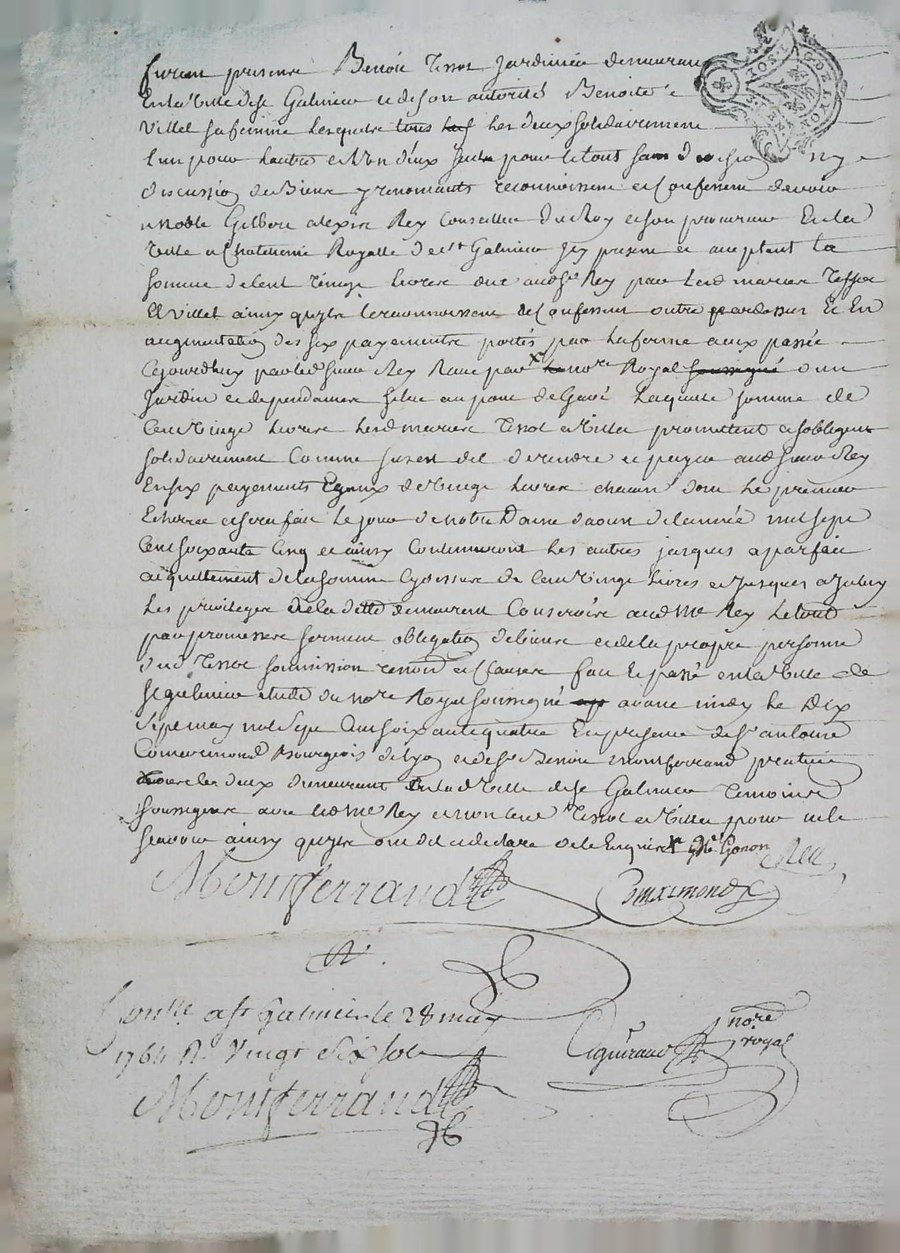 furent presents Benoit Tissot Jardinier demeurant
En la ville de st Galmier et de son autorité Benoite
Villet sa femme lesquels tous les deux solidairement
l'un pour l'autre et l'un d'eux seul pour le tout sans division ny
discussion de Biens y renonçants reconnoissent et Confessent devoir
a noble Gilbert alexis Rey Conseiller Du Roy et son procureur En la
Ville et Chatelenie Royalle de st Galmier Icy present et acceptant La
somme de Cent vingt livres aud sr Rey par lesd mariez Tissot
Et Villet ainsy qu'ils le reconnoissent et Confessent outre par dessus Et En
augmentation des six payements portés par la ferme a eux passée
Cejourdhuy par led sieur Rey Reçue par nore Royal d'un
Jardin et dependances scitue au pont de Gavé Laquelle somme de
Cent vingt livres lesd mariez Tissot et Villet promettent et s'obligent
solidairement Comme susest dit de rendre et payer aud sieur Rey
En six payements Egaux de vingt livres chacun dont le premier
Echerra et sera fait le jour de notre Dame d'aoust de l'année mil sept
Cent soixante Cinq et ainsy Continueront les autres jusques a parfait
acquittement de la somme Cydessus de Cent vingt livres et jusques a Jceluy
les privileges de la dette demeurent Conservés aud Me Rey le tout
par promesses serment obligation de biens et de la propre personne
dud Tissot soumission renond et Clauses fait et passé en la ville de
st galmier etude du nore Royal soussigné avant midy le Dix
Sept may mil sept Cent soixante quatre En presence de sr antoine
Commarmond Bourgeois de Lyon et de sr Benoit Montferrand praticien
tous les deux demeurant En lad ville de st Galmier Temoins
soussignés avec led Me Rey et non lesd Tissot et Villet pour ne le
scavoir ainsy qu'ils ont dit et declaré de ce Enquis x Me Gonon Rey
Montferrand Commarmond
Contle. a st Galmier le 28 may
1764 R. Vingt Six sols
Montferrand
nore
royal